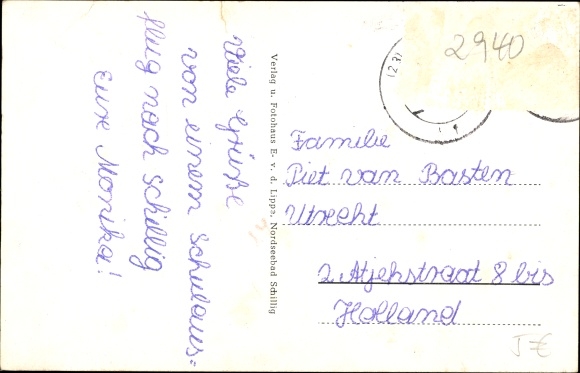 Viele Grüße
von einem Schulaus=
flug nach Schillig
Eure Monika!
Verlag u. Fotohaus E. v. d. Lippe, Nordseebad Schillig
2940
Familie
Piet van Basten
Utrecht
2 Atjehstraat 8 bis
Holland